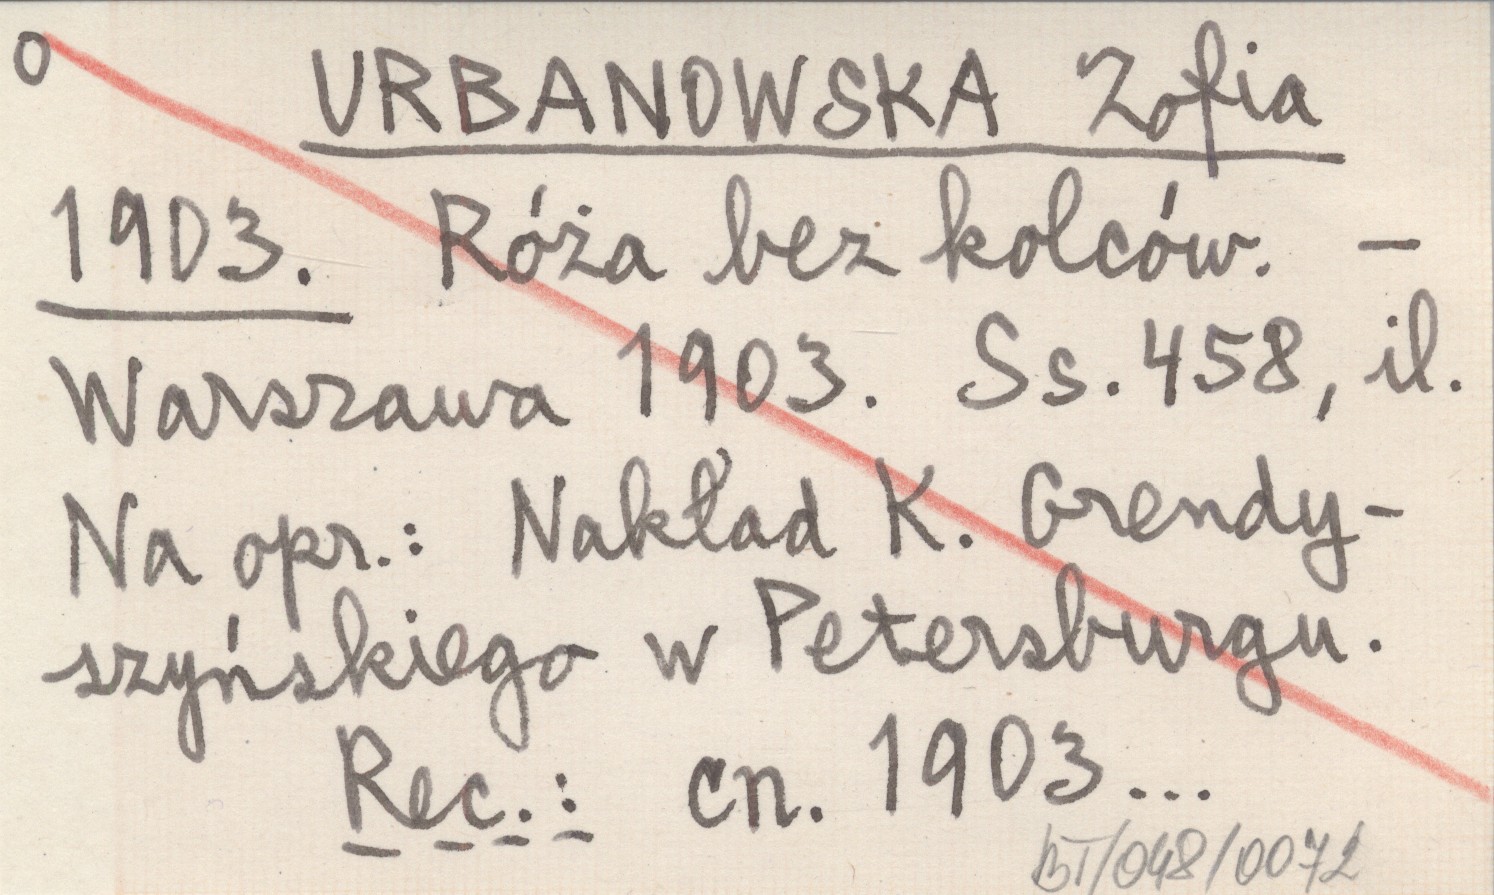 o URBANOWSKA Zofia
1903. Róża bez kolców. —
Warszawa 1903. Ss. 458, il.
Na opr.: Nakład K. Grendy-
szyńskiego w Petersburgu.
Rec.: cn. 1903...
BT/048/0072